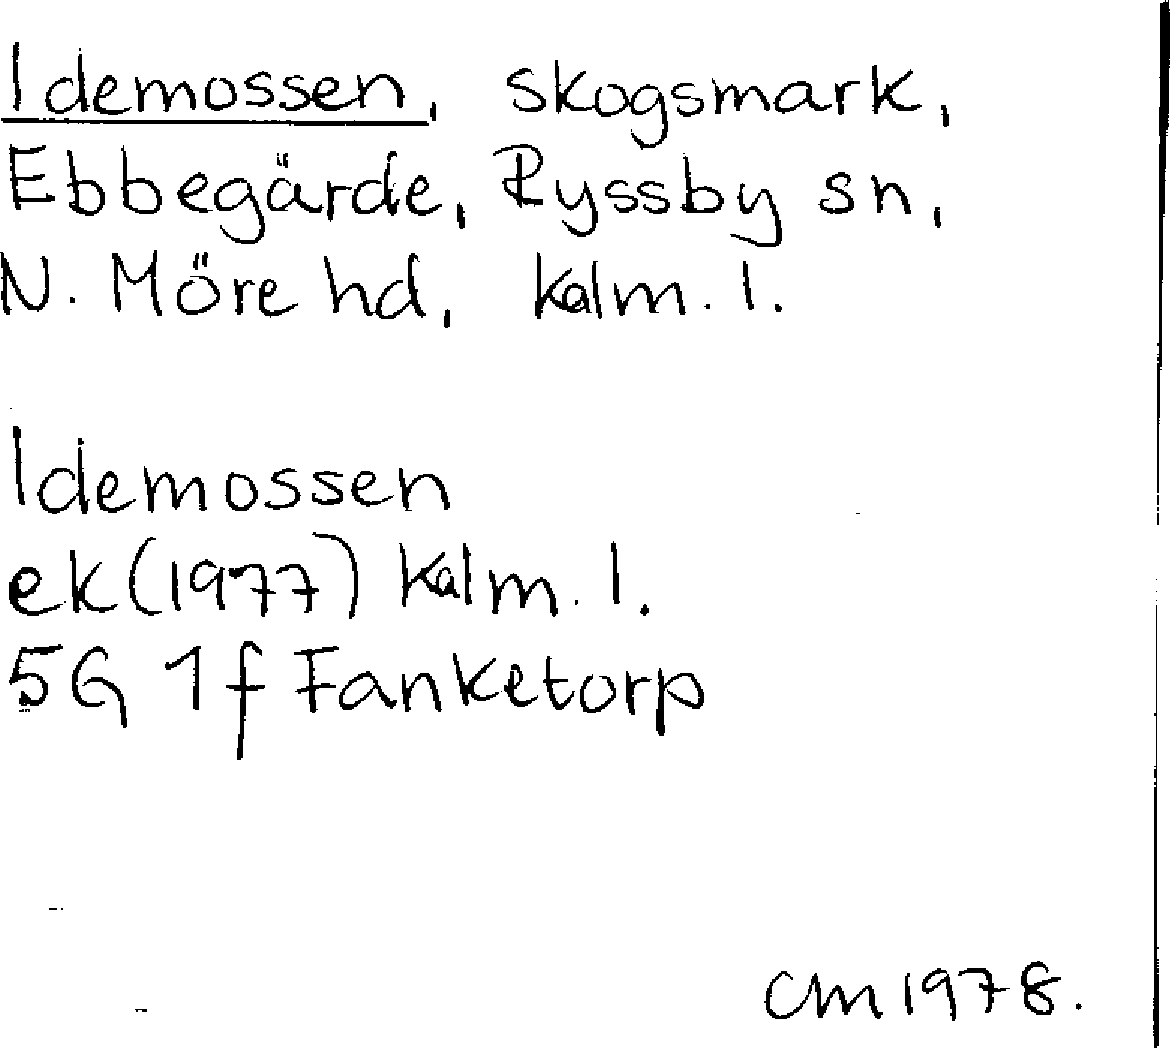 Idemossen, skogsmark,
Ebbegärde, Ryssby sn,
N. Möre hd, Kalm. l.
Idemossen
ek (1977) Kalm. l.
5G 1f Fanketorp
CM 1978.